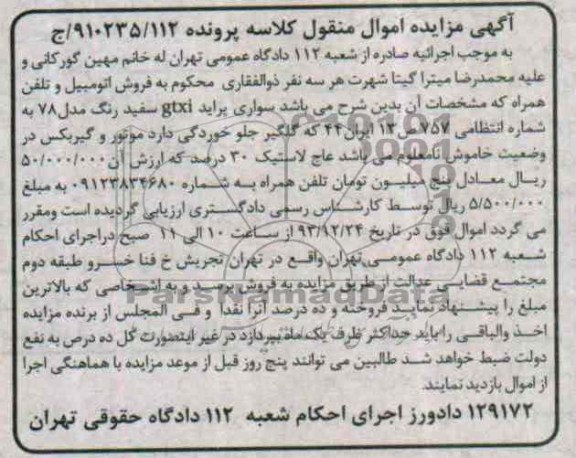 آگهی مزایده اموال منقول کلاسه پرونده ۹۱۰۲۳۵/۱۱۲/ج
به موجب اجرائیه صادره از شعبه ۱۱۲ دادگاه عمومی تهران له خانم مهین گورکانی و
علیه محمدرضا میترا گیتا شهرت هر سه نفر ذوالفقاری محکوم به فروش اتومبیل و تلفن
همراه که مشخصات آن بدین شرح می باشد سواری پراید gtxi سفید رنگ مدل ۷۸ به
شماره انتظامی ۷۵۷ ص ۱۳ ایران ۴۴ که گلگیر جلو خوردگی دارد موتور و گیربکس در
وضعیت خاموش نامعلوم می باشد عاج لاستیک ۳۰ درصد که ارزش آن ۵۰/۰۰۰/۰۰۰
ریال معادل پنج میلیون تومان تلفن همراه به شماره ۰۹۱۲۳۸۳۴۶۸۰ به مبلغ
۵/۵۰۰/۰۰۰ ریال توسط کارشناس رسمی دادگستری ارزیابی گردیده است ومقرر
می گردد اموال فوق در تاریخ ۹۳/۱۲/۲۴ از ساعت ۱۰ الی ۱۱ صبح دراجرای احکام
شعبه ۱۱۲ دادگاه عمومی تهران واقع در تهران تجریش خ فنا خسرو طبقه دوم
مجتمع قضایی عدالت از طریق مزایده به فروش برسد و به اشخاصی که بالاترین
مبلغ را پیشنهاد نمایند فروخته و ده درصد آنرا نقدا و فی المجلس از برنده مزایده
اخذ والباقی را باید حداکثر ظرف یک ماه بپردازد در غیر اینصورت کل ده درص به نفع
دولت ضبط خواهد شد طالبین می توانند پنج روز قبل از موعد مزایده با هماهنگی اجرا
از اموال بازدید نمایند.
۱۲۹۱۷۲ دادورز اجرای احکام شعبه ۱۱۲ دادگاه حقوقی تهران
ParsNamadData